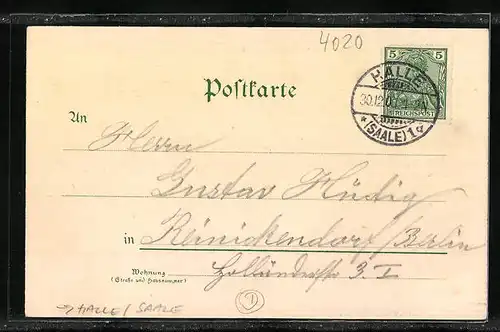 4020
5 5
REICHSPOST
HALLE
30.12.0
* (SAALE) 1 d
Postkarte
An
Herrn
Gustav Hüdig
in Reinickendorf/Berlin
Wohnung
(Straße und Hausnummer)
Holländerstr 3. I
→ HALLE / SAALE